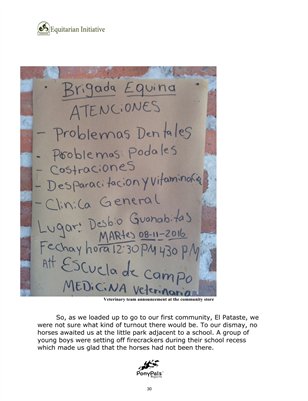 Equitarian Initiative
Brigada Equina
ATENCIONES
- Problemas Dentales
- Problemas Podales
- Castraciones
- Desparacitacion y vitaminacion
- Clinica General
Lugar: Desbio Guanabitas
MARTES 08-11-2016
Fecha y hora 12:30 PM 4:30 P.M.
Att Escuela de campo
MEDICINA Veterinaria
Veterinary team announcement at the community store
So, as we loaded up to go to our first community, El Pataste, we
were not sure what kind of turnout there would be. To our dismay, no
horses awaited us at the little park adjacent to a school. A group of
young boys were setting off firecrackers during their school recess
which made us glad that the horses had not been there.
PonyPals
30